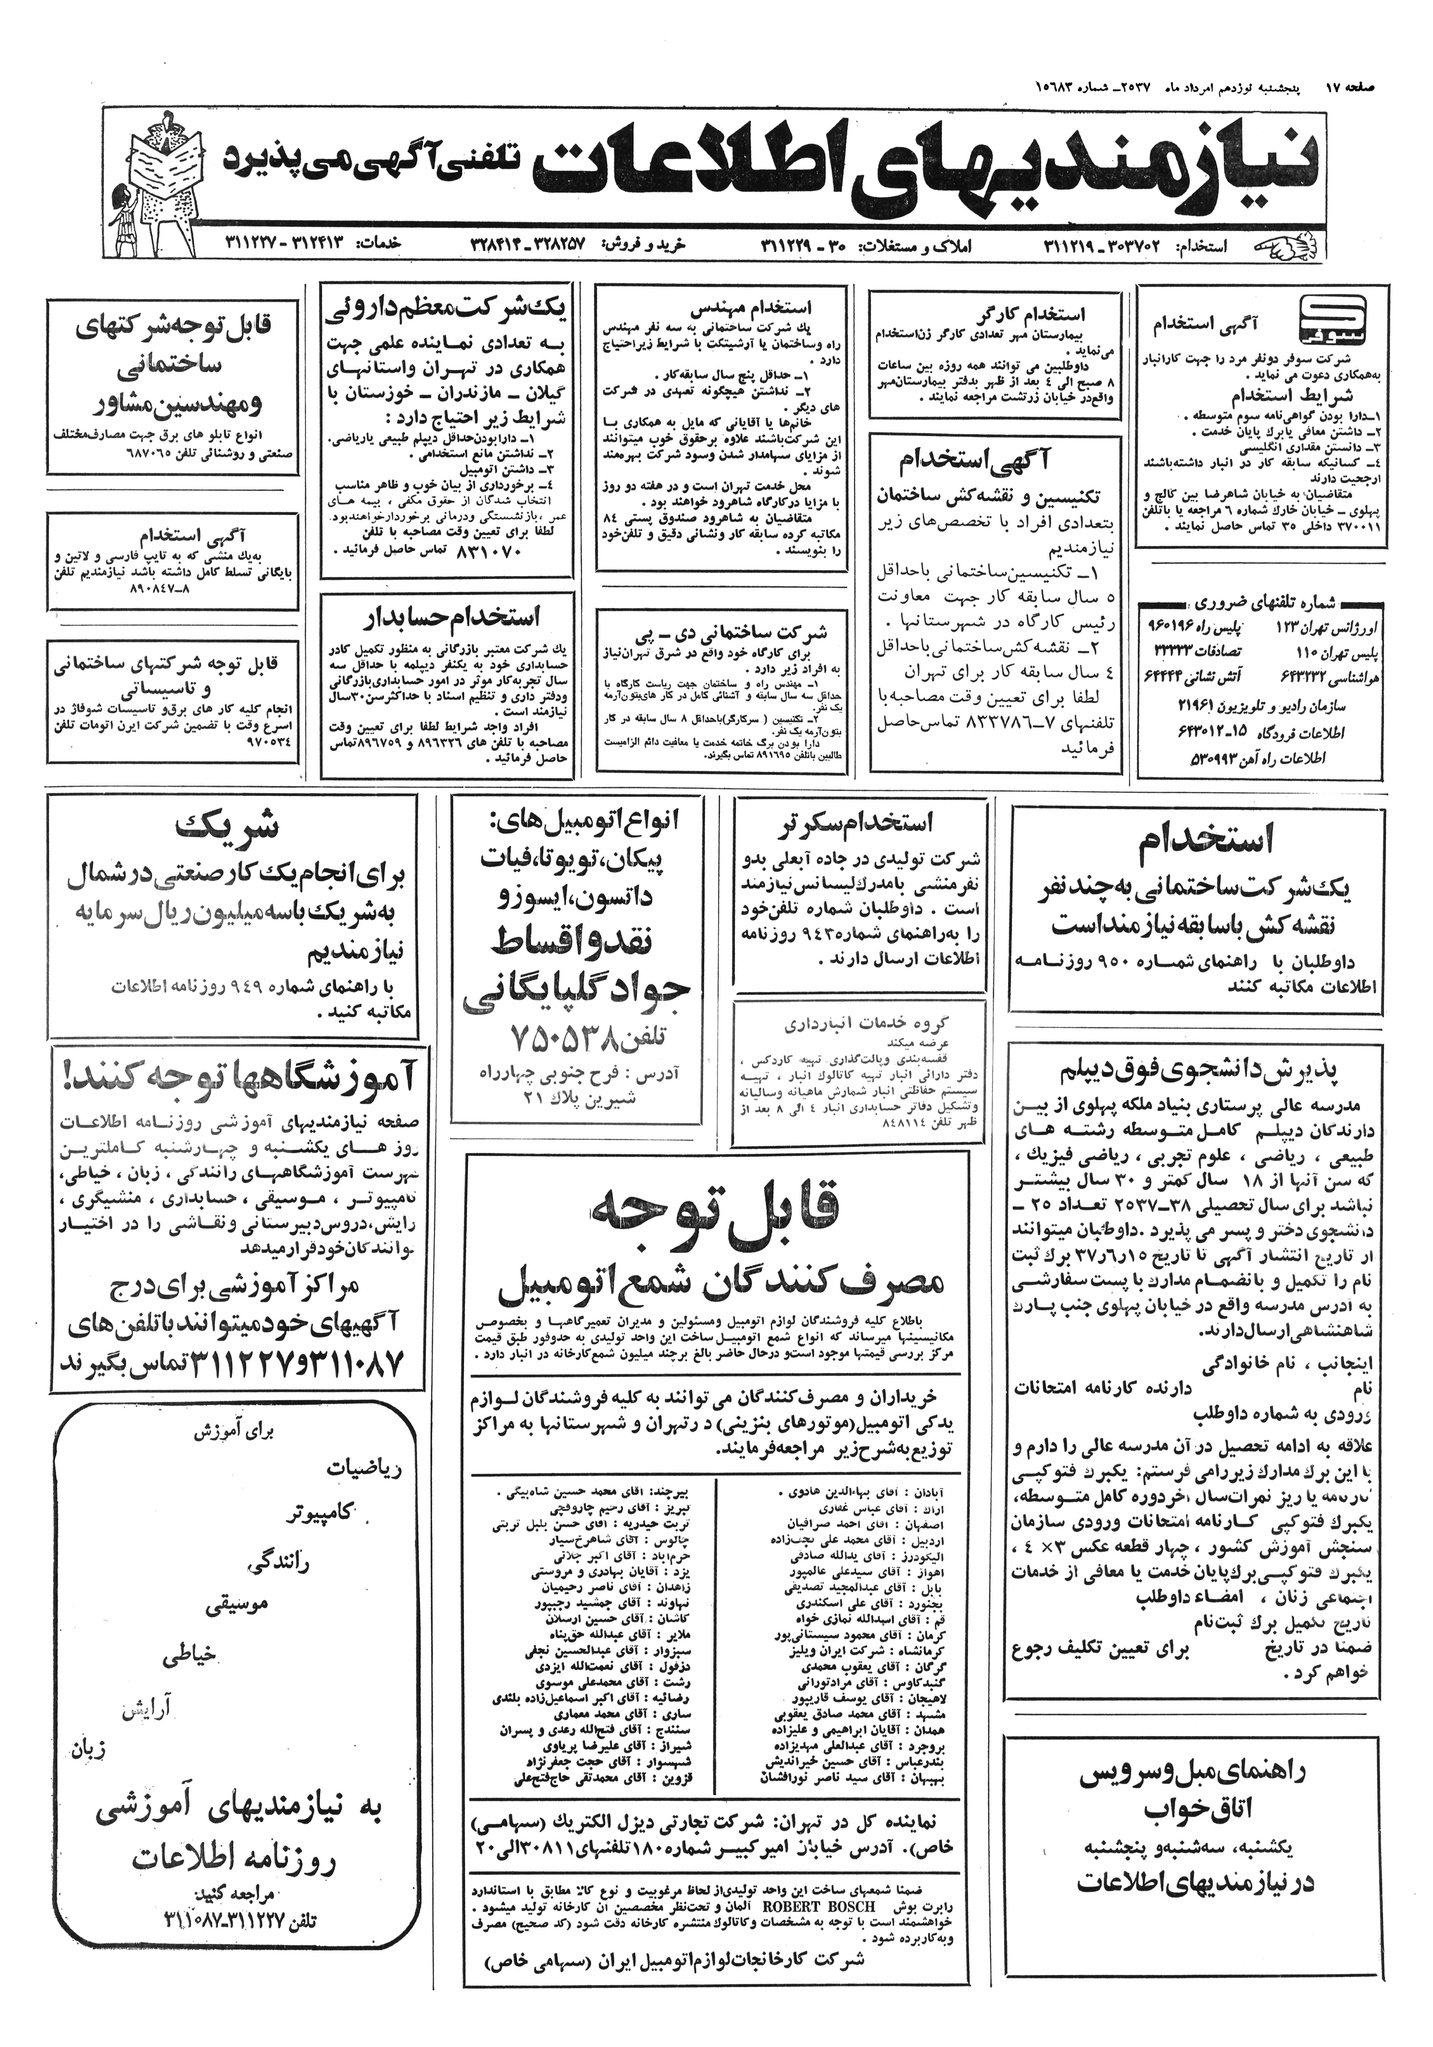 صفحه ۱۷ پنجشنبه نوزدهم امرداد ماه ۲۵۳۷ـ شماره ۱۵۶۸۳
نیازمندیهای اطلاعات تلفنی آگهی می پذیرد
استخدام: ۳۰۳۷۰۲ـ۳۱۱۲۱۹ املاک و مستغلات: ۳۰ـ۳۱۱۲۲۹ خرید و فروش: ۳۲۸۲۵۷ـ۳۲۸۴۱۴ خدمات: ۳۱۲۴۱۳ـ۳۱۱۲۳۷
سوفر
آگهی استخدام
شرکت سوفر دونفر مرد را جهت کارانبار
به‌همکاری دعوت می نماید .
شرایط استخدام
۱ـ دارا بودن گواهی‌نامه سوم متوسطه .
۲ـ داشتن معافی یابرگ پایان خدمت .
۳ـ دانستن مقداری انگلیسی
۴ـ کسانیکه سابقه کار در انبار داشته‌باشند
ارجحیت دارند
متقاضیان به خیابان شاهرضا بین کالج و
پهلوی ـ خیابان خارک شماره ۶ مراجعه یا باتلفن
۳۷۰۰۱۱ داخلی ۳۵ تماس حاصل نمایند .
شماره تلفنهای ضروری
اورژانس تهران ۱۲۳ پلیس راه ۹۶۰۱۹۶
پلیس تهران ۱۱۰ تصادفات ۳۳۳۳۳
هواشناسی ۶۴۳۲۳۲ آتش نشانی ۶۴۴۴۴
سازمان رادیو و تلویزیون ۲۱۹۶۱
اطلاعات فرودگاه ۱۵ـ۶۴۳۰۱۲
اطلاعات راه آهن ۵۳۰۹۹۳
استخدام کارگر
بیمارستان مهر تعدادی کارگر زن‌استخدام
می‌نماید .
داوطلبین می توانند همه روزه بین ساعات
۸ صبح الی ۴ بعد از ظهر بدفتر بیمارستان‌مهر
واقع‌در خیابان زرتشت مراجعه نمایند .
آگهی استخدام
تکنیسین و نقشه‌کش ساختمان
بتعدادی افراد با تخصص‌های زیر
نیازمندیم
۱ـ تکنیسین‌ساختمانی باحداقل
۵ سال سابقه کار جهت معاونت
رئیس کارگاه در شهرستانها .
۲ـ نقشه‌کش‌ساختمانی‌باحداقل
۴ سال سابقه کار برای تهران
لطفا برای تعیین وقت مصاحبه‌با
تلفنهای ۷ـ۸۳۳۷۸۶ تماس‌حاصل
فرمائید
استخدام مهندس
یک شرکت ساختمانی به سه نفر مهندس
راه وساختمان یا آرشیتکت با شرایط زیراحتیاج
دارد .
۱ـ حداقل پنج سال سابقه‌کار .
۲ـ نداشتن هیچگونه تعهدی در شرکت
های دیگر .
خانم‌ها یا آقایانی که مایل به همکاری با
این شرکت‌باشند علاوه برحقوق خوب میتوانند
از مزایای سهامدار شدن وسود شرکت بهره‌مند
شوند .
محل خدمت تهران است و در هفته دو روز
با مزایا درکارگاه شاهرود خواهند بود .
متقاضیان به شاهرود صندوق پستی ۸۴
مکاتبه کرده سابقه کار ونشانی دقیق و تلفن‌خود
را بنویسند .
شرکت ساختمانی دی ـ پی
برای کارگاه خود واقع در شرق تهران‌نیاز
به افراد زیر دارد .
۱ـ مهندس راه و ساختمان جهت ریاست کارگاه با
حداقل سه سال سابقه و آشنائی کامل در کار های‌بتون‌آرمه
یک نفر.
۲ـ تکنیسین ( سرکارگر)باحداقل ۸ سال سابقه در کار
بتون‌آرمه یک نفر.
دارا بودن برگ خاتمه خدمت یا معافیت دائم الزامیست
طالبین باتلفن ۸۹۱۶۹۵ تماس بگیرند.
یک شرکت معظم داروئی
به تعدادی نماینده علمی جهت
همکاری در تهران واستانهای
گیلان ـ مازندران ـ خوزستان با
شرایط زیر احتیاج دارد :
۱ـ دارابودن‌حداقل دیپلم طبیعی یاریاضی.
۲ـ نداشتن مانع استخدامی .
۳ـ داشتن اتومبیل
۴ـ برخورداری از بیان خوب و ظاهر مناسب
انتخاب شدگان از حقوق مکفی ، بیمه های
عمر ،بازنشستگی ودرمانی برخوردارخواهندبود.
لطفا برای تعیین وقت مصاحبه با تلفن
۸۳۱۰۷۰ تماس حاصل فرمائید .
استخدام حسابدار
یک شرکت معتبر بازرگانی به منظور تکمیل کادر
حسابداری خود به یکنفر دیپلمه با حداقل سه
سال تجربه‌کار موثر در امور حسابداری‌بازرگانی
ودفتر داری و تنظیم اسناد با حداکثرسن۳۰سال
نیازمند است .
افراد واجد شرایط لطفا برای تعیین وقت
مصاحبه با تلفن های ۸۹۶۳۲۶ و ۸۹۶۷۵۹تماس
حاصل فرمائید .
قابل توجه شرکتهای
ساختمانی
ومهندسین مشاور
انواع تابلو های برق جهت مصارف‌مختلف
صنعتی و روشنائی تلفن ۶۸۷۰۶۵
آگهی استخدام
به‌یک منشی که به تایپ فارسی و لاتین و
بایگانی تسلط کامل داشته باشد نیازمندیم تلفن
۸ـ۸۹۰۸۴۷
قابل توجه شرکتهای ساختمانی
و تاسیساتی
انجام کلیه کار های برق‌و تاسیسات شوفاژ در
اسرع وقت با تضمین شرکت ایرن اتومات تلفن
۹۷۰۵۳۴
استخدام
یک شرکت ساختمانی به چند نفر
نقشه کش باسابقه نیازمنداست
داوطلبان با راهنمای شماره ۹۵۰ روزنامه
اطلاعات مکاتبه کنند
پذیرش دانشجوی فوق دیپلم
مدرسه عالی پرستاری بنیاد ملکه پهلوی از بین
دارندگان دیپلم کامل متوسطه رشته های
طبیعی ، ریاضی ، علوم تجربی ، ریاضی فیزیک ،
که سن آنها از ۱۸ سال کمتر و ۳۰ سال بیشتر
نباشد برای سال تحصیلی ۳۸ـ۲۵۳۷ تعداد ۲۵ ـ
دانشجوی دختر و پسر می پذیرد .داوطلبان میتوانند
از تاریخ انتشار آگهی تا تاریخ ۳۷٫۶٫۱۵ برگ ثبت
نام را تکمیل و بانضمام مدارک با پست سفارشی
به آدرس مدرسه واقع در خیابان پهلوی جنب پارک
شاهنشاهی‌ارسال‌دارند.
اینجانب ، نام خانوادگی
نام دارنده کارنامه امتحانات
ورودی به شماره داوطلب
علاقه به ادامه تحصیل در آن مدرسه عالی را دارم و
با این برگ مدارک زیررامی فرستم: یکبرگ فتوکپی
کارنامه یا ریز نمرات‌سال آخردوره کامل متوسطه،
یکبرگ فتوکپی کارنامه امتحانات ورودی سازمان
سنجش آموزش کشور ، چهار قطعه عکس ۳×۴ ،
یکبرگ فتوکپی‌برگ‌پایان خدمت یا معافی از خدمات
اجتماعی زنان ، امضاء داوطلب
تاریخ تکمیل برگ ثبت‌نام
ضمنا در تاریخ برای تعیین تکلیف رجوع
خواهم کرد .
راهنمای مبل و سرویس
اتاق خواب
یکشنبه، سه‌شنبه‌و پنجشنبه
در نیازمندیهای اطلاعات
استخدام سکرتر
شرکت تولیدی در جاده آبعلی بدو
نفرمنشی بامدرک‌لیسانس‌نیازمند
است . داوطلبان شماره تلفن‌خود
را به‌راهنمای شماره۹۴۳ روزنامه
اطلاعات ارسال دارند .
گروه خدمات انبارداری
عرضه میکند
قفسه‌بندی وپالت‌گذاری تهیه کاردکس ،
دفتر دارائی انبار تهیه کاتالوک انبار ، تهیه
سیستم حفاظتی انبار شمارش ماهیانه وسالیانه
وتشکیل دفاتر حسابداری انبار ۴ الی ۸ بعد از
ظهر تلفن ۸۴۸۱۱۴
انواع اتومبیل‌های:
پیکان، تویوتا، فیات
داتسون، ایسوزو
نقد و اقساط
جواد گلپایگانی
تلفن ۷۵۰۵۳۸
آدرس : فرح جنوبی چهارراه
شیرین پلاک ۲۱
شریک
برای انجام یک کار صنعتی در شمال
به شریک باسه میلیون ریال سرمایه
نیازمندیم
با راهنمای شماره ۹۴۹ روزنامه اطلاعات
مکاتبه کنید .
آموزشگاهها توجه کنند!
صفحه نیازمندیهای آموزشی روزنامه اطلاعات
روز های یکشنبه و چهارشنبه کاملترین
فهرست آموزشگاههای رانندگی ، زبان ، خیاطی،
کامپیوتر ، موسیقی ، حسابداری ، منشیگری ،
آرایش،دروس‌دبیرستانی ونقاشی را در اختیار
خوانندگان‌خودقرارمیدهد
مراکز آموزشی برای درج
آگهیهای خود میتوانند باتلفن‌های
۳۱۱۰۸۷و۳۱۱۲۲۷تماس بگیرند
برای آموزش
ریاضیات
کامپیوتر
رانندگی
موسیقی
خیاطی
آرایش
زبان
به نیازمندیهای آموزشی
روزنامه اطلاعات
مراجعه کنید:
تلفن ۳۱۱۲۲۷ـ۳۱۱۰۸۷
قابل توجه
مصرف کنندگان شمع اتومبیل
باطلاع کلیه فروشندگان لوازم اتومبیل ومسئولین و مدیران تعمیرگاهها و بخصوص
مکانیسینها میرساند که انواع شمع اتومبیل‌ساخت این واحد تولیدی به حدوفور طبق قیمت
مرکز بررسی قیمتها موجود است‌و درحال حاضر بالغ برچند میلیون شمع‌کارخانه در انبار دارد .
خریداران و مصرف‌کنندگان می‌توانند به کلیه فروشندگان لوازم
یدکی اتومبیل(موتورهای بنزینی) در تهران و شهرستانها به مراکز
توزیع‌به‌شرح‌زیر مراجعه‌فرمایند.
آبادان : آقای بهاءالدین هادوی .
اراک : آقای عباس غفاری
اصفهان : آقای احمد صرافیان
اردبیل : آقای محمد علی نجف‌زاده
الیگودرز : آقای یدالله صادقی
اهواز : آقای سیدعلی عالمپور
بابل : آقای عبدالمجید تصدیقی
بجنورد : آقای علی اسکندری
قم : آقای اسدالله نمازی خواه
کرمان : آقای محمود سیستانی‌پور
کرمانشاه : شرکت ایران ویلیز
گرگان : آقای یعقوب محمدی
گنبدکاوس : آقای مرادنورانی
لاهیجان : آقای یوسف قاریپور
مشهد : آقای محمد صادق یعقوبی
همدان : آقایان ابراهیمی و علیزاده
بروجرد : آقای عبدالعلی مهدیزاده
بندرعباس : آقای حسین خیراندیش
بهبهان : آقای سید ناصر نورافشان
بیرجند: آقای محمد حسین شاه‌بیگی .
تبریز : آقای رحیم چاروقچی
تربت حیدریه : آقای حسن بلبل تربتی
چالوس : آقای شاهرخ‌سیار
خرم‌آباد : آقای اکبر جلائی
یزد : آقایان بهادری و مروستی
زاهدان : آقای ناصر رحیمیان
نهاوند : آقای جمشید رجبپور
کاشان : آقای حسین ارسلان
ملایر : آقای عبدالله حق‌پناه
سبزوار : آقای عبدالحسین نجفی
دزفول : آقای نعمت‌الله ایزدی
رشت : آقای محمدعلی موسوی
رضائیه : آقای اکبر اسماعیل‌زاده بلندی
ساری : آقای محمد معماری
سنندج : آقای فتح‌الله رعدی و پسران
شیراز : آقای علیرضا پریاوی
شهسوار : آقای حجت جعفرنژاد
قزوین : آقای محمدتقی حاج‌فتح‌علی
نماینده کل در تهران: شرکت تجارتی دیزل الکتریک (سهامی
خاص). آدرس خیابان امیرکبیر شماره ۱۸۰تلفنهای۳۰۸۱۱الی۲۰
ضمنا شمعهای ساخت این واحد تولیدی‌از لحاظ مرغوبیت و نوع کالا مطابق با استاندارد
رابرت بوش ROBERT BOSCH آلمان و تحت‌نظر مخصصین آن کارخانه تولید میشود .
خواهشمند است با توجه به مشخصات وکاتالوک منتشره کارخانه دقت شود (کد صحیح) مصرف
وبه‌کاربرده شود .
شرکت کارخانجات‌لوازم‌اتومبیل ایران (سهامی خاص)